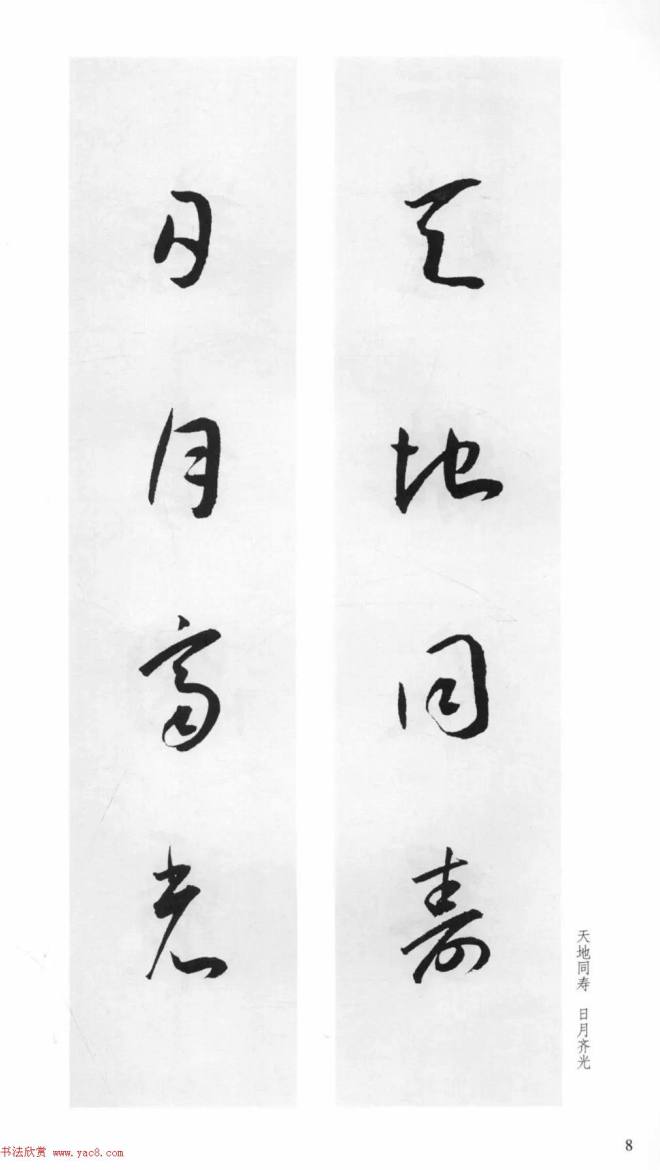 天地同寿
日月齐光
天地同寿 日月齐光
8
书法欣赏 www.yac8.com